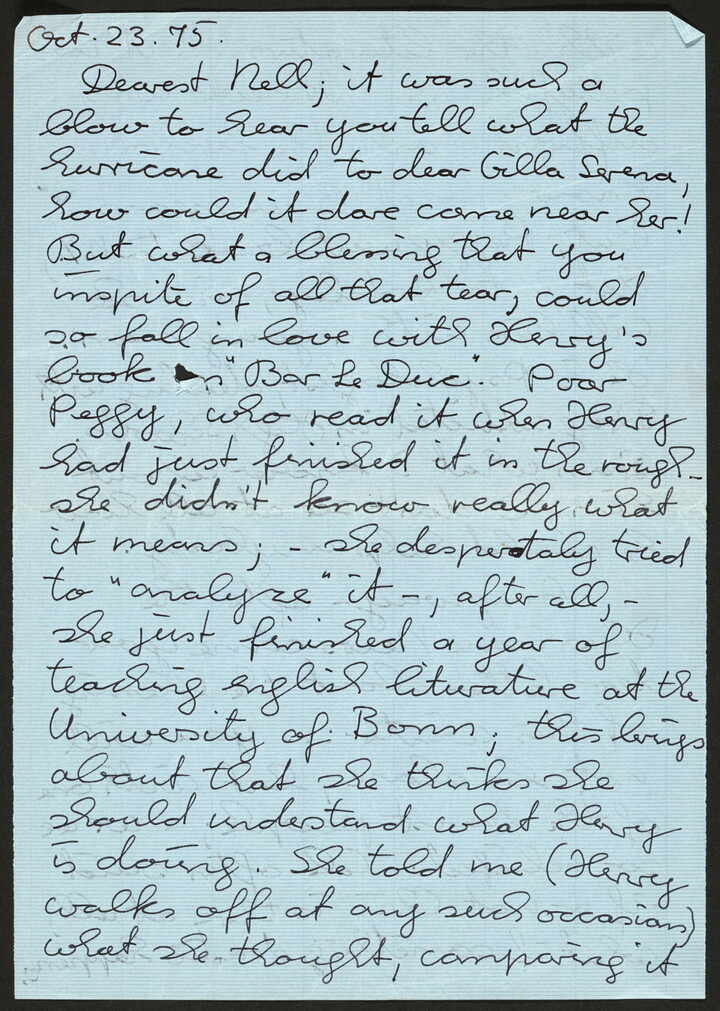 Oct. 23. 75.
Dearest Nell; it was such a
blow to hear you tell what the
hurricane did to dear Gilla Serena,
how could it dare come near her!
But what a blessing that you
inspite of all that tear, could
so fall in love with Henry's
book "Bar Le Duc". Poor
Peggy, who read it when Henry
had just finished it in the rough -
she didn't know really what
it means; - she desperataly tried
to "analyze" it -, after all, -
she just finished a year of
teaching english literature at the
University of Bonn; this brings
about that she thinks she
should understand what Henry
is doing. She told me (Henry
walks off at any such occasion)
what she thought, comparing it